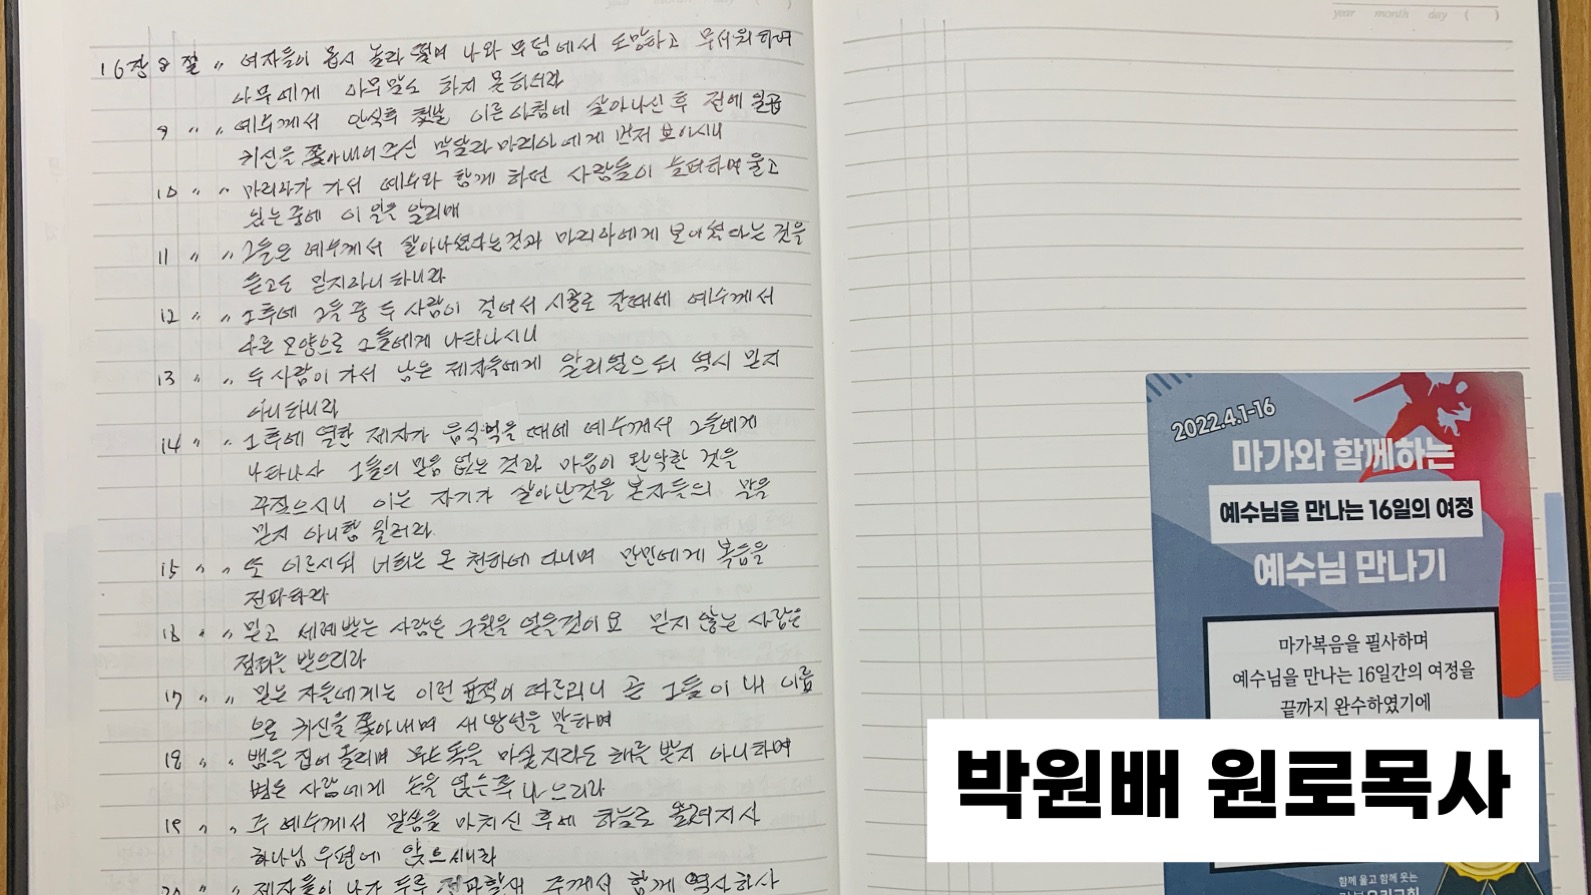 year month day ( )
year month day ( )
16장 8절 〃 여자들이 몹시 놀라 떨며 나와 무덤에서 도망하고 무서워하여
아무에게 아무말도 하지 못하더라
9 〃 〃 예수께서 안식후 첫날 이른 아침에 살아나신 후 전에 일곱
귀신을 쫓아내어주신 막달라 마리아에게 먼저 보이시니
10 〃 〃 마리아가 가서 예수와 함께 하던 사람들이 슬퍼하며 울고
있는 중에 이 일을 알리매
11 〃 〃 그들은 예수께서 살아나셨다는것과 마리아에게 보이셨다는 것을
듣고도 믿지아니하니라
12 〃 〃 그후에 그들 중 두 사람이 걸어서 시골로 갈때에 예수께서
다른 모양으로 그들에게 나타나시니
13 〃 〃 두 사람이 가서 남은 제자들에게 알리었으되 역시 믿지
아니하니라
14 〃 〃 그후에 열한 제자가 음식 먹을 때에 예수께서 그들에게
나타나사 그들의 믿음 없는 것과 마음이 완악한 것을
꾸짖으시니 이는 자기가 살아난것을 본자들의 말을
믿지 아니함 일러라
15 〃 〃 또 이르시되 너희는 온 천하에 다니며 만민에게 복음을
전파하라
16 〃 〃 믿고 세례받는 사람은 구원을 얻을것이요 믿지 않는 사람은
정죄를 받으리라
17 〃 〃 믿는 자들에게는 이런 표적이 따르리니 곧 그들이 내 이름
으로 귀신을 쫓아내며 새 방언을 말하며
18 〃 〃 뱀을 집어 올리며 무슨 독을 마실지라도 해를 받지 아니하며
병든 사람에게 손을 얹은즉 나으리라
19 〃 〃 주 예수께서 말씀을 마치신 후에 하늘로 올려지사
하나님 우편에 앉으시니라
20 〃 〃 제자들이 나가 두루 전파할새 주께서 함께 역사하사
2022.4.1-16
마가와 함께하는
예수님을 만나는 16일의 여정
예수님 만나기
마가복음을 필사하며
예수님을 만나는 16일간의 여정을
끝까지 완수하였기에
박원배 원로목사
함께 울고 함께 웃는